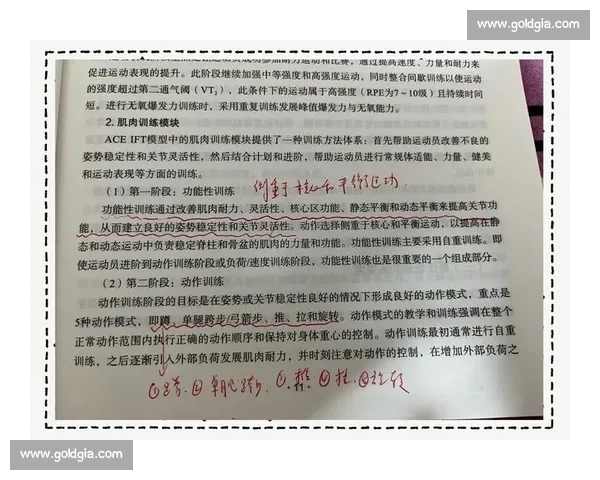 www.goldgia.com
促进运动表现的提升。此阶段继续加强中等强度和高强度运动，同时整合间歇训练以使运动
的强度超过第二通气阈（VT₂），此条件下的运动属于高强度（RPE为7～10级）且持续时间
短。进行无氧爆发力训练时，采用重复训练发展峰值爆发力与无氧能力。
2. 肌肉训练模块
ACE IFT模型中的肌肉训练模块提供了一种训练方法体系：首先帮助运动员改善不良的
姿势稳定性和关节灵活性，然后结合计划和进阶，帮助运动员进行常规体适能、力量、健美
和运动表现等方面的训练。
（1）第一阶段：功能性训练
侧重于核心和平衡运动
功能性训练通过改善肌肉耐力、灵活性、核心区功能、静态平衡和动态平衡来提高关节功
能，从而建立良好的姿势稳定性和关节灵活性。动作选择侧重于核心和平衡运动，以提高在静
态和动态运动中负责稳定脊柱和骨盆的肌肉的力量和功能。功能性训练主要采用自重训练。即
使运动员进阶到动作训练阶段或负荷/速度训练阶段，功能性训练也是很重要的一个组成部分。
（2）第二阶段：动作训练
动作训练阶段的目标是在姿势或关节稳定性良好的情况下形成良好的动作模式，重点是
5种动作模式，即蹲、单腿跨步/弓箭步、推、拉和旋转。动作模式的教学和训练强调在整个
正常动作范围内执行正确的动作顺序和保持对身体重心的控制。动作训练最初通常进行自重
训练，之后逐渐引入外部负荷发展肌肉耐力，并时刻注意对动作的控制，在增加外部负荷之
①蹲、②单腿跨步、③推④拉、⑤旋转
www.goldgia.com